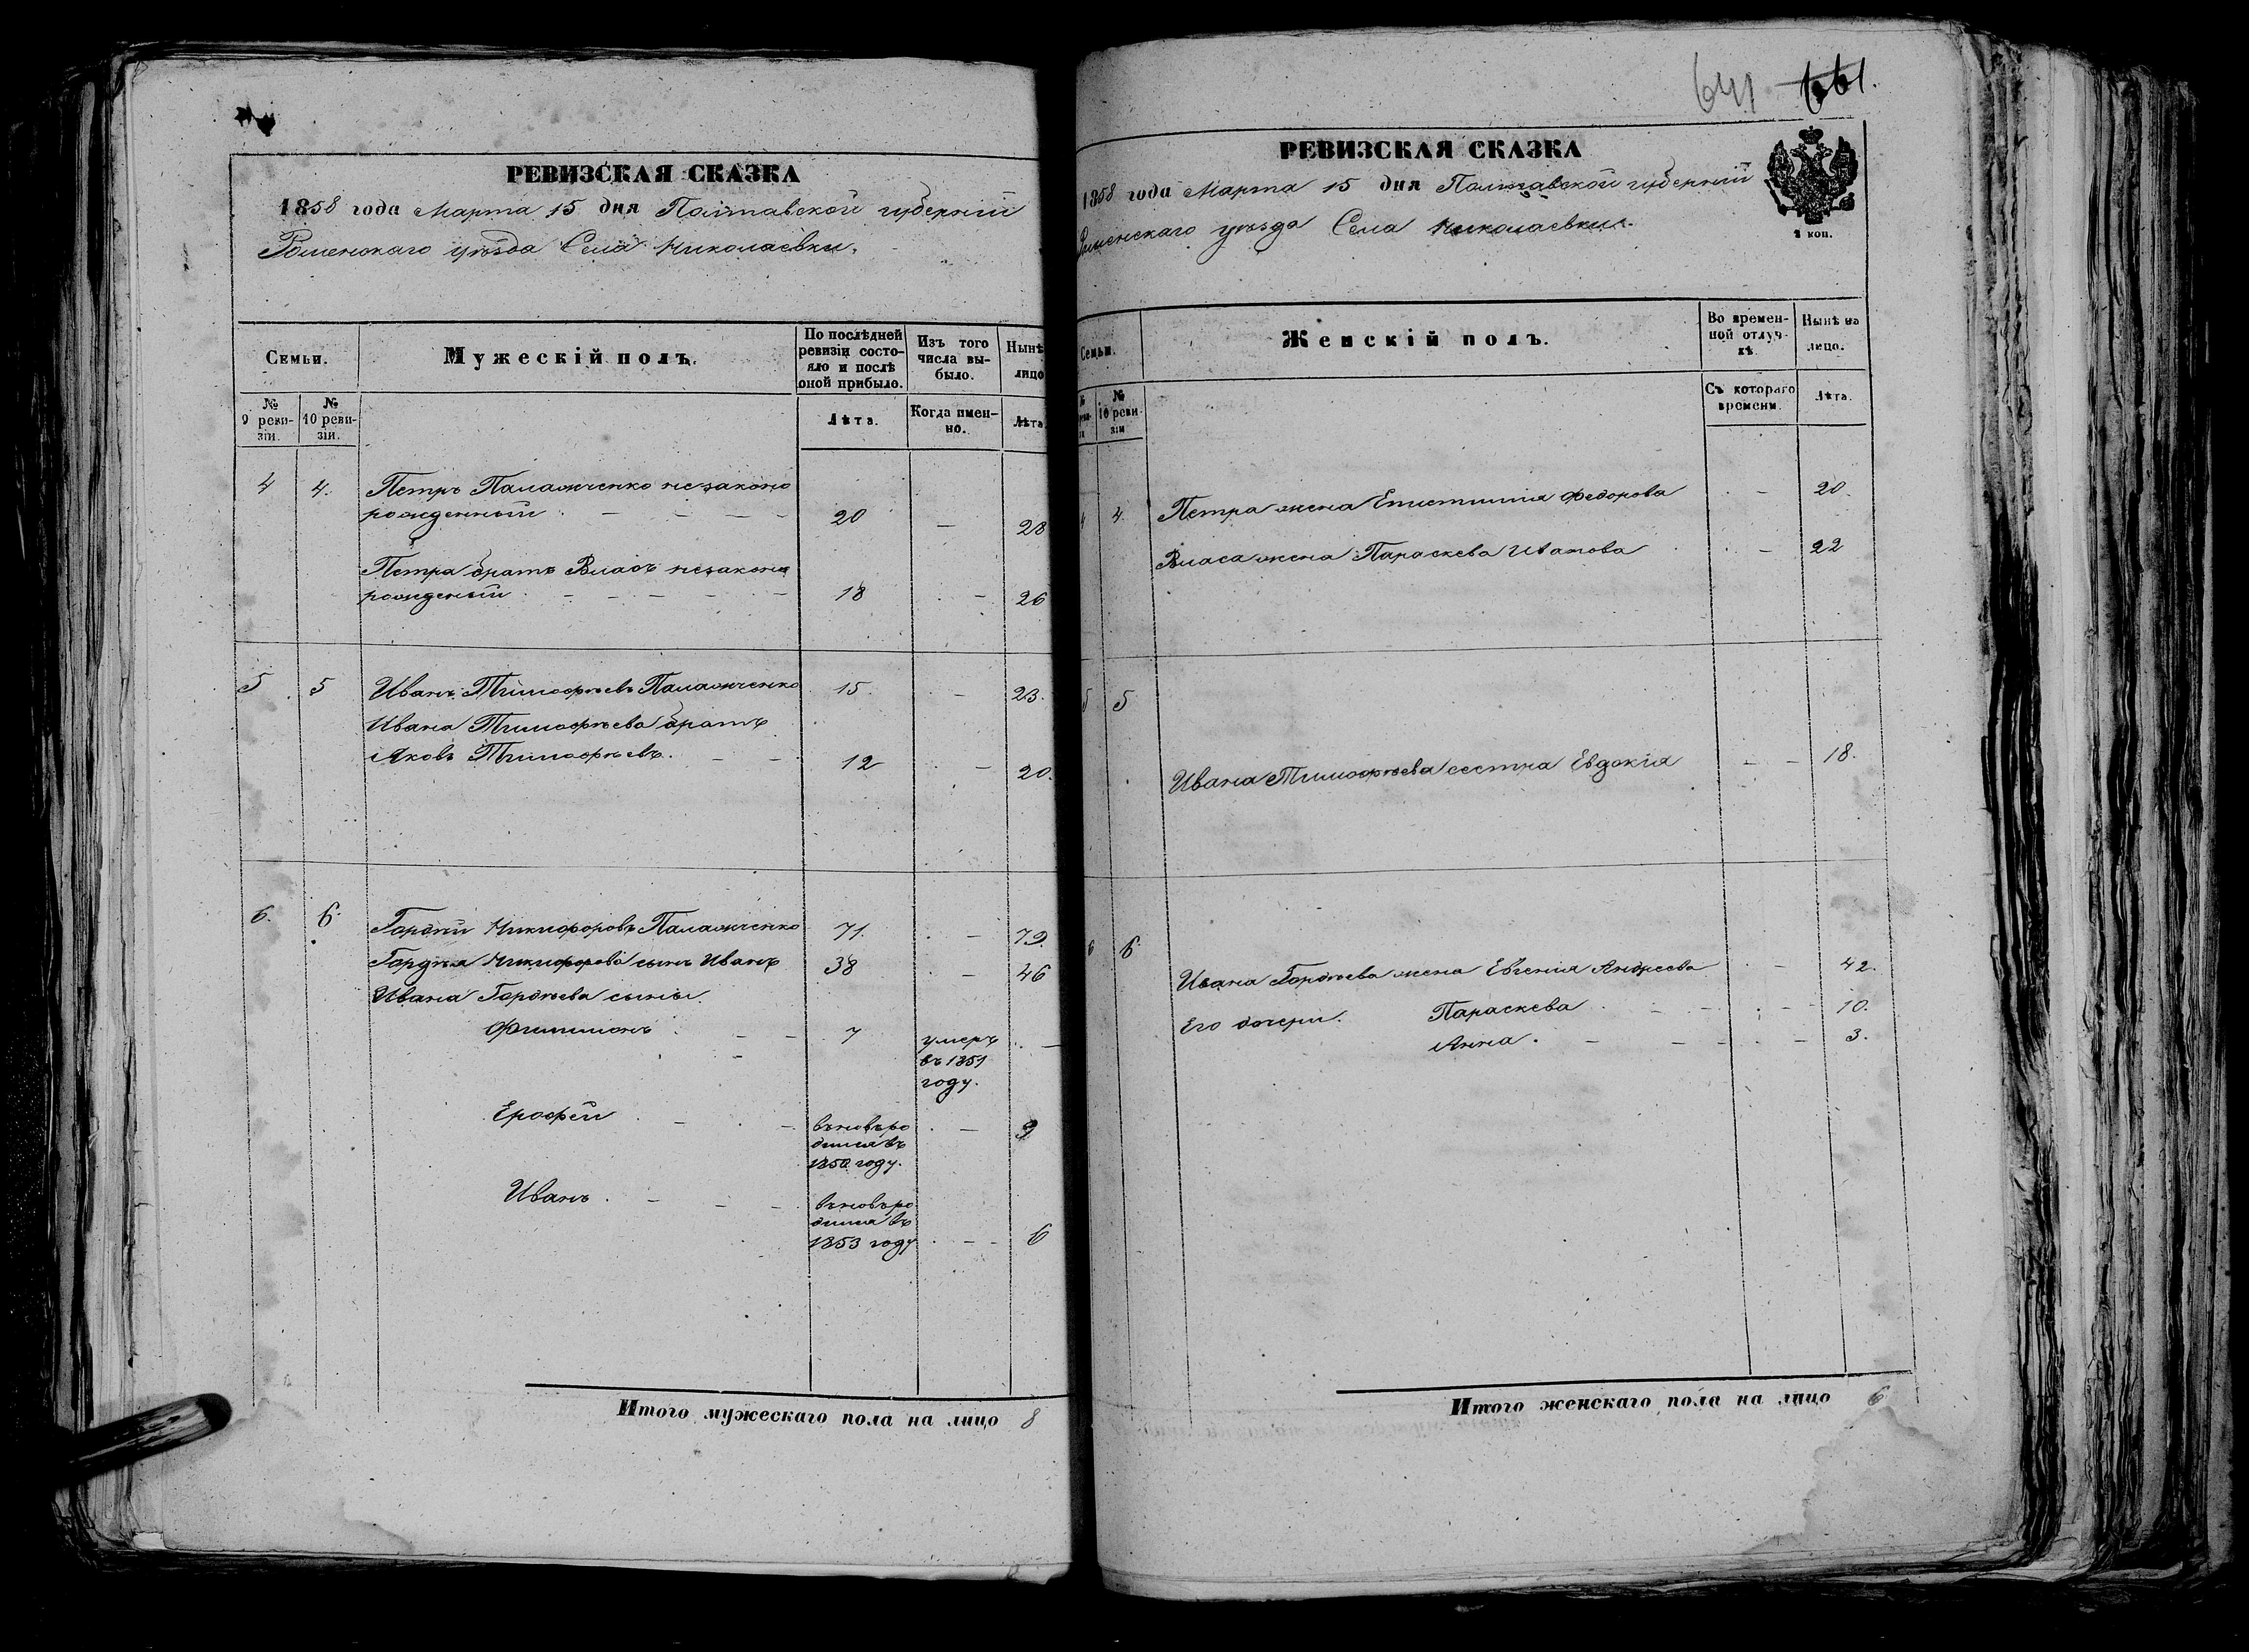 РЕВИЗСКАЯ СКАЗКА
1858 года Марта 15 дня Полтавской губерніи
Роменскаго уѣзда Села Николаевки.
Семьи.
Мужескій полъ.
По послѣдней
ревизіи состо-
яло и послѣ
оной прибыло.
Изъ того
числа вы-
было.
Нынѣ
лицо
№
9 реви-
зіи.
№
10 реви-
зіи.
Лѣта.
Когда имен-
но.
Лѣта
4 4. Петръ Паламченко незаконо
рожденный 20 — 28
Петра братъ Власъ незаконо
рожденый 18 — 26
5 5 Иванъ Тимофѣевъ Паламченко 15. — 23.
Ивана Тимофѣева братъ
Яковъ Тимофѣевъ. 12 — 20.
6. 6. Гордѣй Никифоровъ Паламченко 71. — 79.
Гордѣя Никифорова сынъ Иванъ 38 — 46
Ивана Гордѣева сыны.
Филимонъ 7 умеръ —
въ 1851
году.
Ерофѣй вновьро — 9
дился въ
1850 году.
Иванъ. вновьро
дился въ
1853 году — 6
Итого мужескаго пола на лицо 8
641 661.
РЕВИЗСКАЯ СКАЗКА
1858 года Марта 15 дня Полтавской губерніи
Роменскаго уѣзда Села Николаевки.
2 коп.
Семьи.
Женскій полъ.
Во времен-
ной отлуч-
кѣ.
Нынѣ на
лицо.
№
№
10 реви-
зіи
Съ котораго
времени.
Лѣта.
4 4. Петра жена Епистимія Федорова — 20.
Власа жена Параскева Иванова — 22
5 5
Ивана Тимофѣева сестра Евдокія — 18.
6 6.
Ивана Гордѣева жена Евгенія Андреева — 42.
Его дочери. Параскева — 10.
Анна. — 3.
Итого женскаго пола на лицо 6